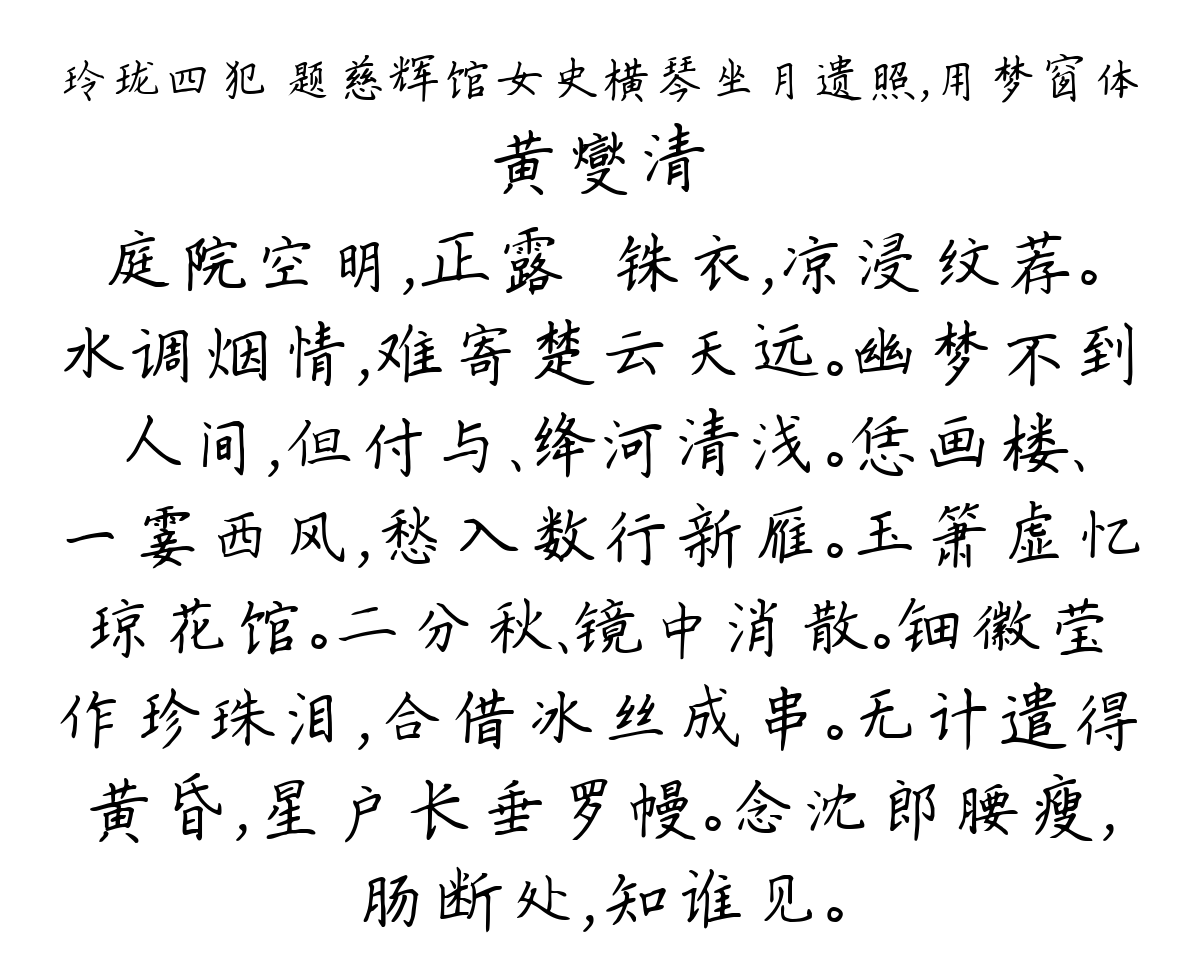 玲珑四犯 题慈辉馆女史横琴坐月遗照,用梦窗体
黄燮清
庭院空明,正露 铢衣,凉浸纹荐。
水调烟情,难寄楚云天远。幽梦不到
人间,但付与、绛河清浅。恁画楼、
一霎西风,愁入数行新雁。玉箫虚忆
琼花馆。二分秋、镜中消散。钿徽莹
作珍珠泪,合借冰丝成串。无计遣得
黄昏,星户长垂罗幔。念沈郎腰瘦,
肠断处,知谁见。